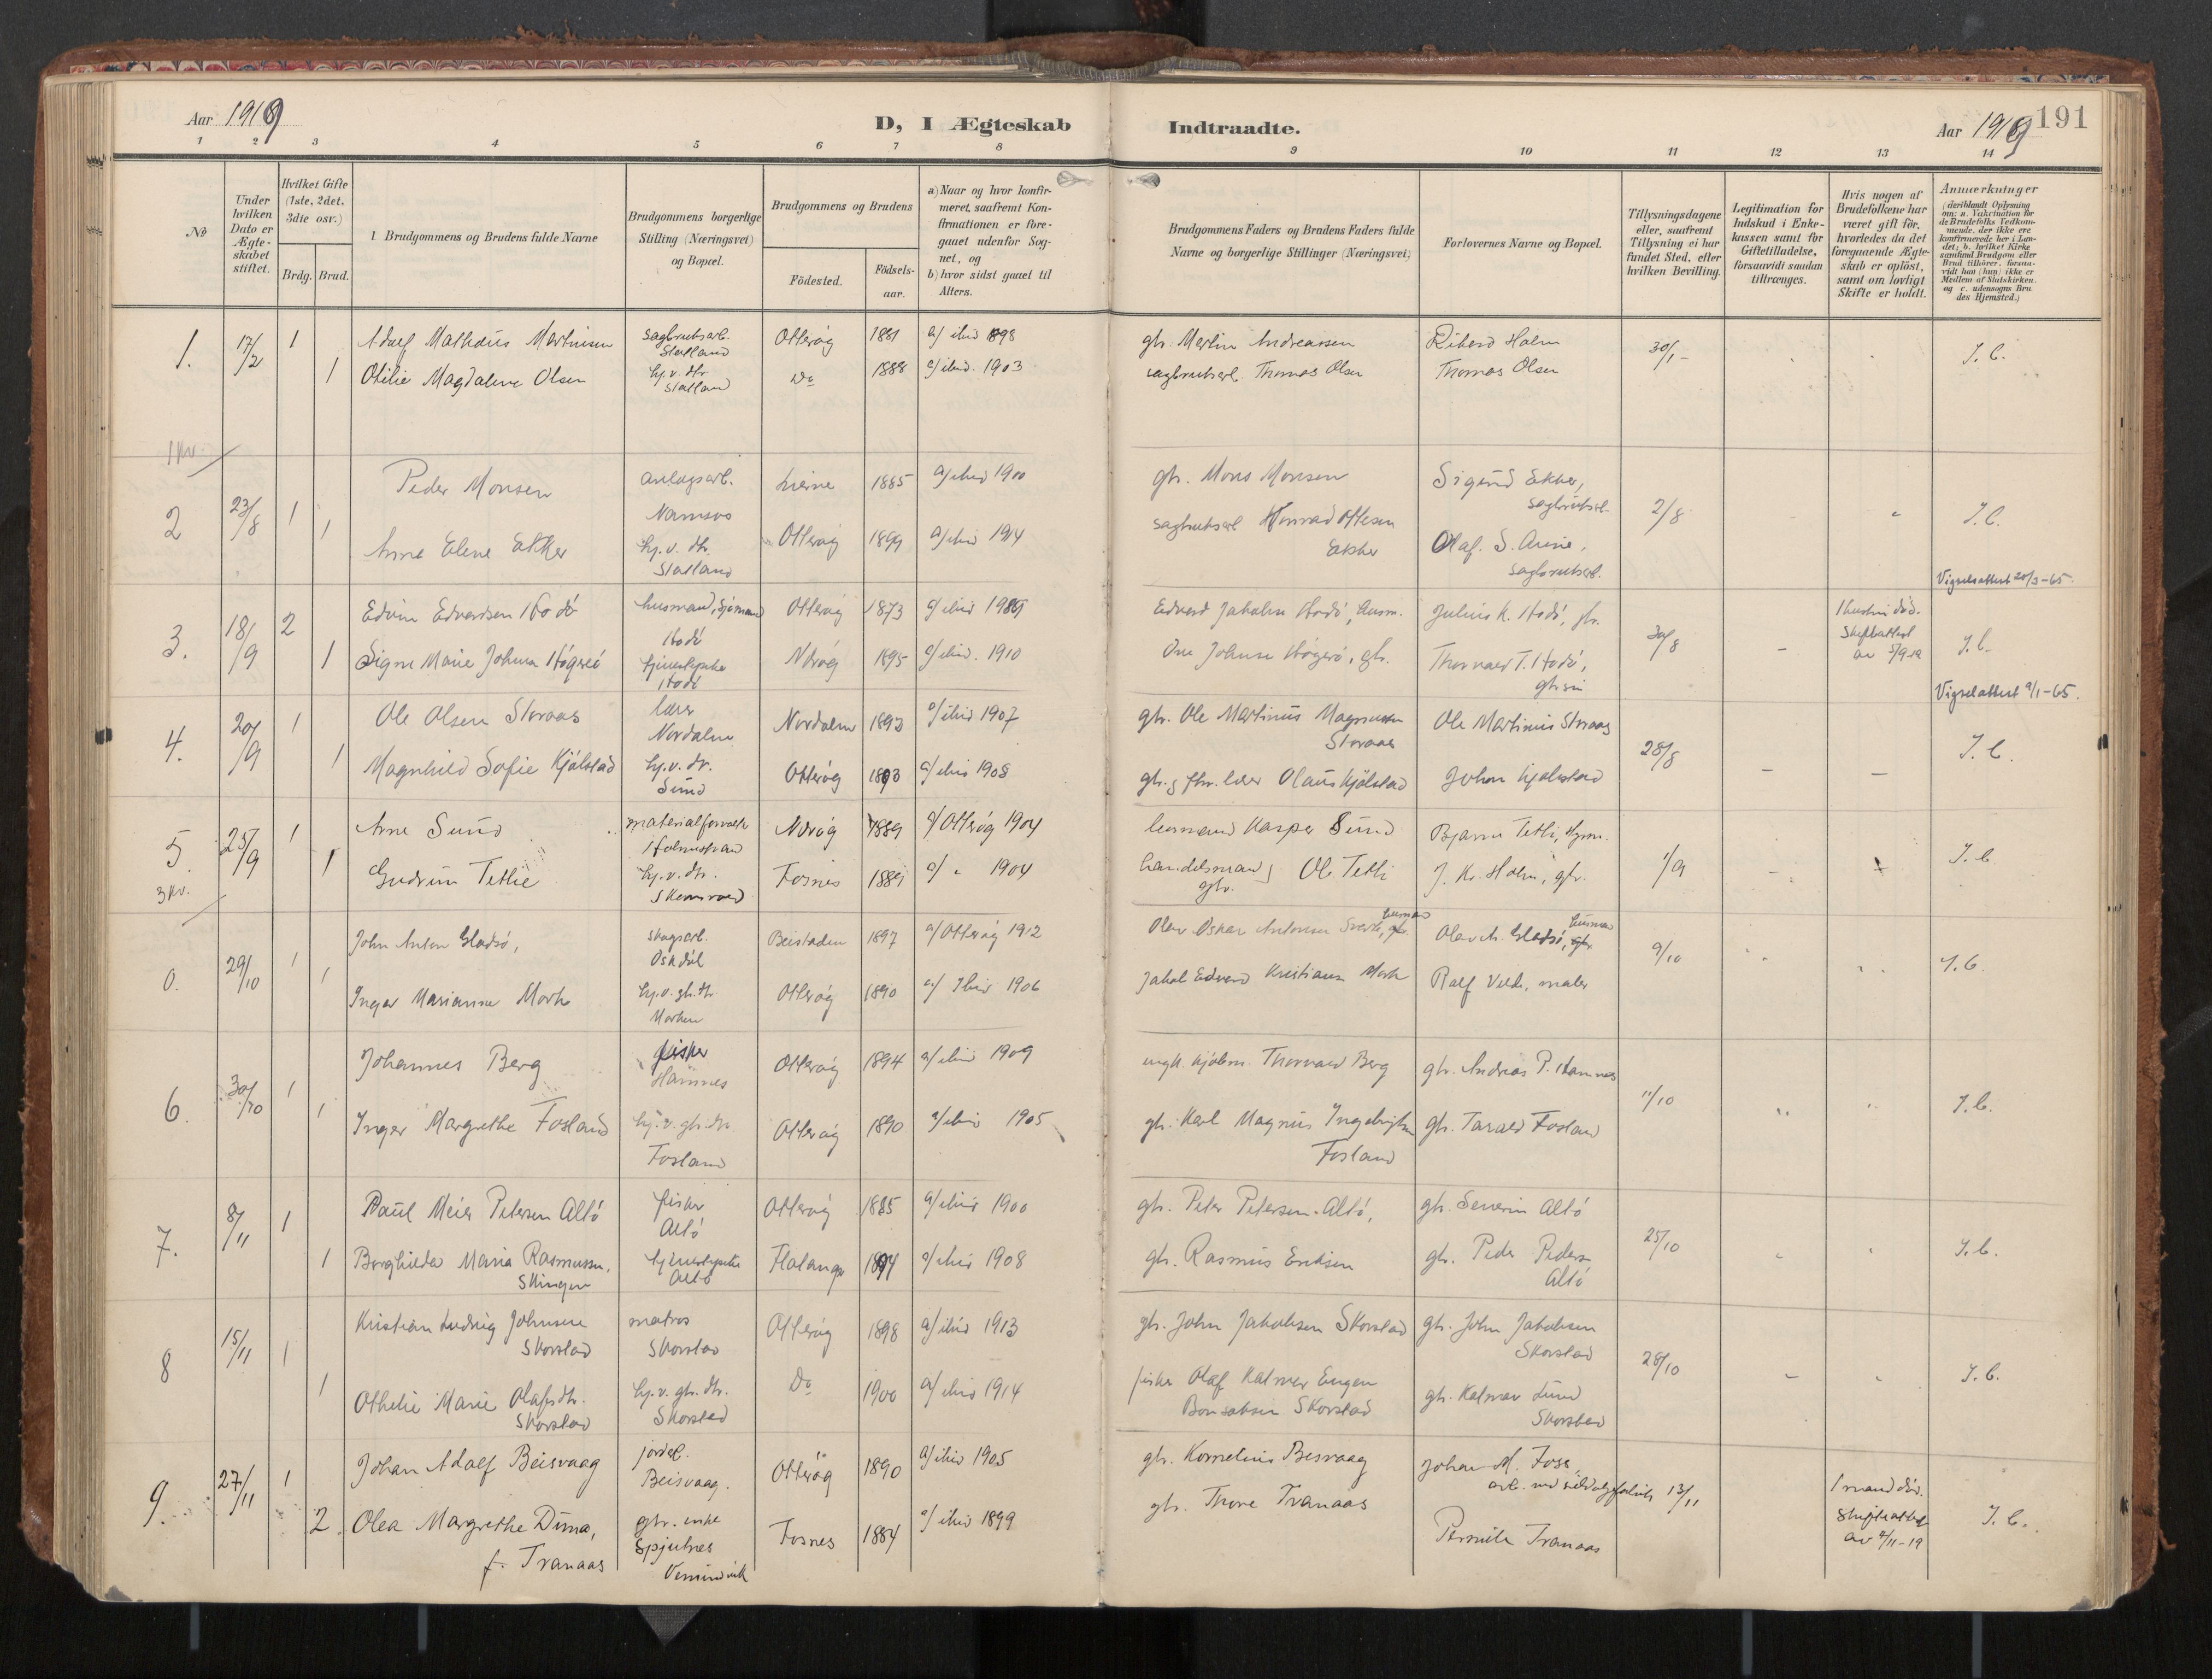 Aar 1919
D, I Ægteskab
Indtraadte.
Aar 1919
191
1 2 3 4 5 6 7 8 9 10 11 12 13 14
No
Under hvilken Dato er Ægte-skabet stiftet.
Hvilket Gifte (1ste, 2det, 3die osv.)
Brdg. Brud.
Brudgommens og Brudens fulde Navne
Brudgommens borgerlige Stilling (Næringsvei) og Bopæl.
Brudgommens og Brudens
Födested.
Födsels-aar.
a) Naar og hvor konfir-meret, saafremt Kon-firmationen er fore-gaaet udenfor Sog-net, og
b) hvor sidst gaaet til Alters.
Brudgommens Faders og Brudens Faders fulde Navne og borgerlige Stillinger (Næringsvei)
Forlovernes Navne og Bopæl.
Tillysningsdagene eller, saafremt Tillysning ei har fundet Sted, efter hvilken Bevilling.
Legitimation for Indskud i Enke-kassen samt for Giftetilladelse, forsaavidt saadan tiltrænges.
Hvis nogen af Brudefolkene har været gift för, hvorledes da det foregaaende Ægte-skab er oplöst, samt om lovligt Skifte er holdt.
Anmærkninger (deriblandt Oplysning om: a. Vakcination for de Brudefolks Vedkom-mende, der ikke ere konfirmerede her i Lan-det; b. hvilket Kirke samfund Brudgom eller Brud tilhörer, forsaa-vidt han (hun) ikke er Medlem af Statskirken, og c. udensogns Bru des Hjemsted.)
1. 17/2 1 Adolf Mathæus Martinsen sagbruksarb. Statland Otterøy 1881 a/ ibid 1898 gbr. Martin Andreassen Rikard Holm 30/1 - J. C.
1 Otilie Magdalene Olsen hj.v. dtr. Statland Do 1888 a/ ibid. 1903 sagbruksarb. Thomas Olsen Thomas Olsen
1 kv.
2 23/8 1 Peder Monsen anlægsarb. Namsos Lierne 1885 a/ ibid 1900 gbr. Mons Monsen Sigurd Ekker, sagbruksarb. 2/8 J. C.
1 Anne Elene Ekker hj. v. dtr. Statland Otterøy 1899 a/ ibid 1914 sagbruksarb Konrad Ottesen Ekker Olaf. S. Aune, sagbruksarb.
Vigselsattest 20/3-65.
3. 18/9 2 Edvin Edvardsen Hodö husmand, sjömand Hodö Otterøy 1873 a/ ibid 1889 Edvard Jakobsen Hodö, husm. Julius K. Hodö, gbr. 30/8 - 1 hustru död. Skifteattest av 5/9-19 J. C.
1 Signe Marie Johnsen tjenestepike Hodö Nærøy 1895 a/ ibid. 1910 Thorvald T. Hodö, gbrsøn
Vigselattest 9/1-65.
4. 20/9 1 Ole Olsen Storaas lærer Nordalen Nordalen 1893 a/ ibid 1907 gbr. Ole Martinus Magnussen Storaas Ole Martinus Storaas 28/8 - - J. C.
1 Magnhild Sofie Kjölstad hj. v. dtr. Sund Otterøy 1893 a/ ibid 1908 gbr. Olaus Kjölstad Johan Kjölstad
5. 25/9 1 Arne Sund materialforvalter Holmestrand Nærøy 1889 a/ Otterøy 1904 lensmand Kasper Sund Bjarne Tetli, 1/9 J. C.
1 Gudrun Tetlie hj. v. dtr. Fosnes 1889 a/ " 1904 handelsmand, gbr. Ole Tetli J. Kr. Holm, gbr.
3 kv.
0. 29/10 1 John Anton Gladsö, skogsarb. Beistaden 1897 a/ Otterøy 1912 Olav Oskar Antonsen husmand Olav A. Gladsö, husmand 9/10 J. C.
1 Inger Marianne Mork hj.v. gb.dtr Morken Otterøy 1890 a/ Ibid 1906 Jakob Edvard Kristiansen Mork Ralf Velde, maler
6. 30/10 1 Johannes Berg fisker Hamnes Otterøy 1894 a/ ibid 1909 Thorvald Berg gbr. Andreas P. Hamnes 11/10 J. C.
1 Inger Margrethe Fosland hj. v. gb.dtr Fosland Otterøy 1890 a/ ibid 1905 gbr. Karl Magnus Ingebrigtsen Fosland gbr. Tarald Fosland
7. 8/11 1 Paul Meier Petersen Altö fisker Altö Otterøy 1885 a/ ibid 1900 gbr. Peter Petersen Altö, gbr. Severin Altö 25/10 J. C.
1 Borghilda Maria Rasmussen, tjenestepike Altö 1894 a/ ibid 1908 gbr. Rasmus Eriksen gbr. Peder Peders. Altö
8 15/11 1 Kristian Ludvig Johnsen Skorstad matros Skorstad Otterøy 1898 a/ ibid 1913 gbr. John Jakobsen Skorstad gbr. John Jakobsen Skorstad 28/10 - J. C.
1 Othelie Marie Olafsdtr. Skorstad hj. v. gbr. dtr. Skorstad Do 1900 a/ ibid 1914 fisker Olaf Kalmer Eugen Skorstad gbr. Kalmar Lund Skorstad
9. 27/11 1 Johan Adolf Beisvaag jordel. Beisvaag. Otterøy 1890 a/ ibid 1905 gbr. Kornelius Besvaag Johan M. Foss 13/11 1 mand död. Skifteattest av 9/11-19 J. C.
2 Olea Margrethe Duna, f. Tranaas gbr. enke Spjutnes Vemundvik Fosnes 1884 a/ ibid 1899 gbr. Thore Tranaas Pernille Tranaas